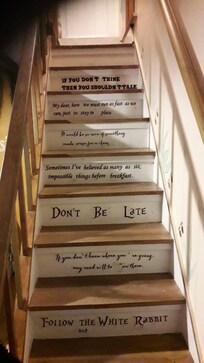 IF YOU DON'T THINK
THEN YOU SHOULDN'T TALK
My dear, here we must run as fast as we
can, just to stay in place
It would be so nice if something
made sense for a change.
Sometimes I've believed as many as six
impossible things before breakfast.
DON'T BE LATE
If you don't know where you're going,
any road will take you there.
FOLLOW THE WHITE RABBIT